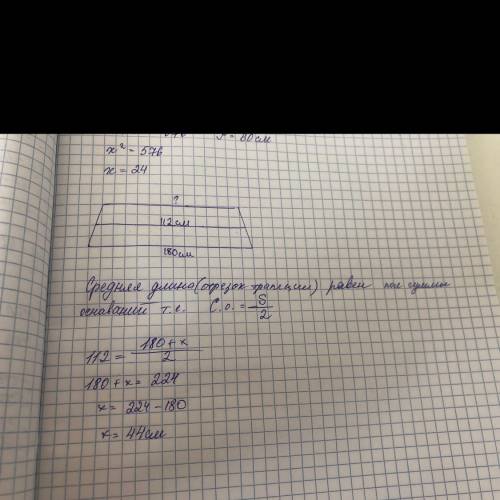 P = 80см
x² = 576
x = 24
?
112см
180см
Средняя длина (отрезок трапеции) равен пол суммы
оснований т.е. С.о. = S/2
112 = 180 + x / 2
180 + x = 224
x = 224 - 180
x = 44см